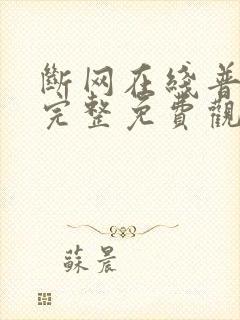 斷网在綫普
完整免費觀
蘇晨